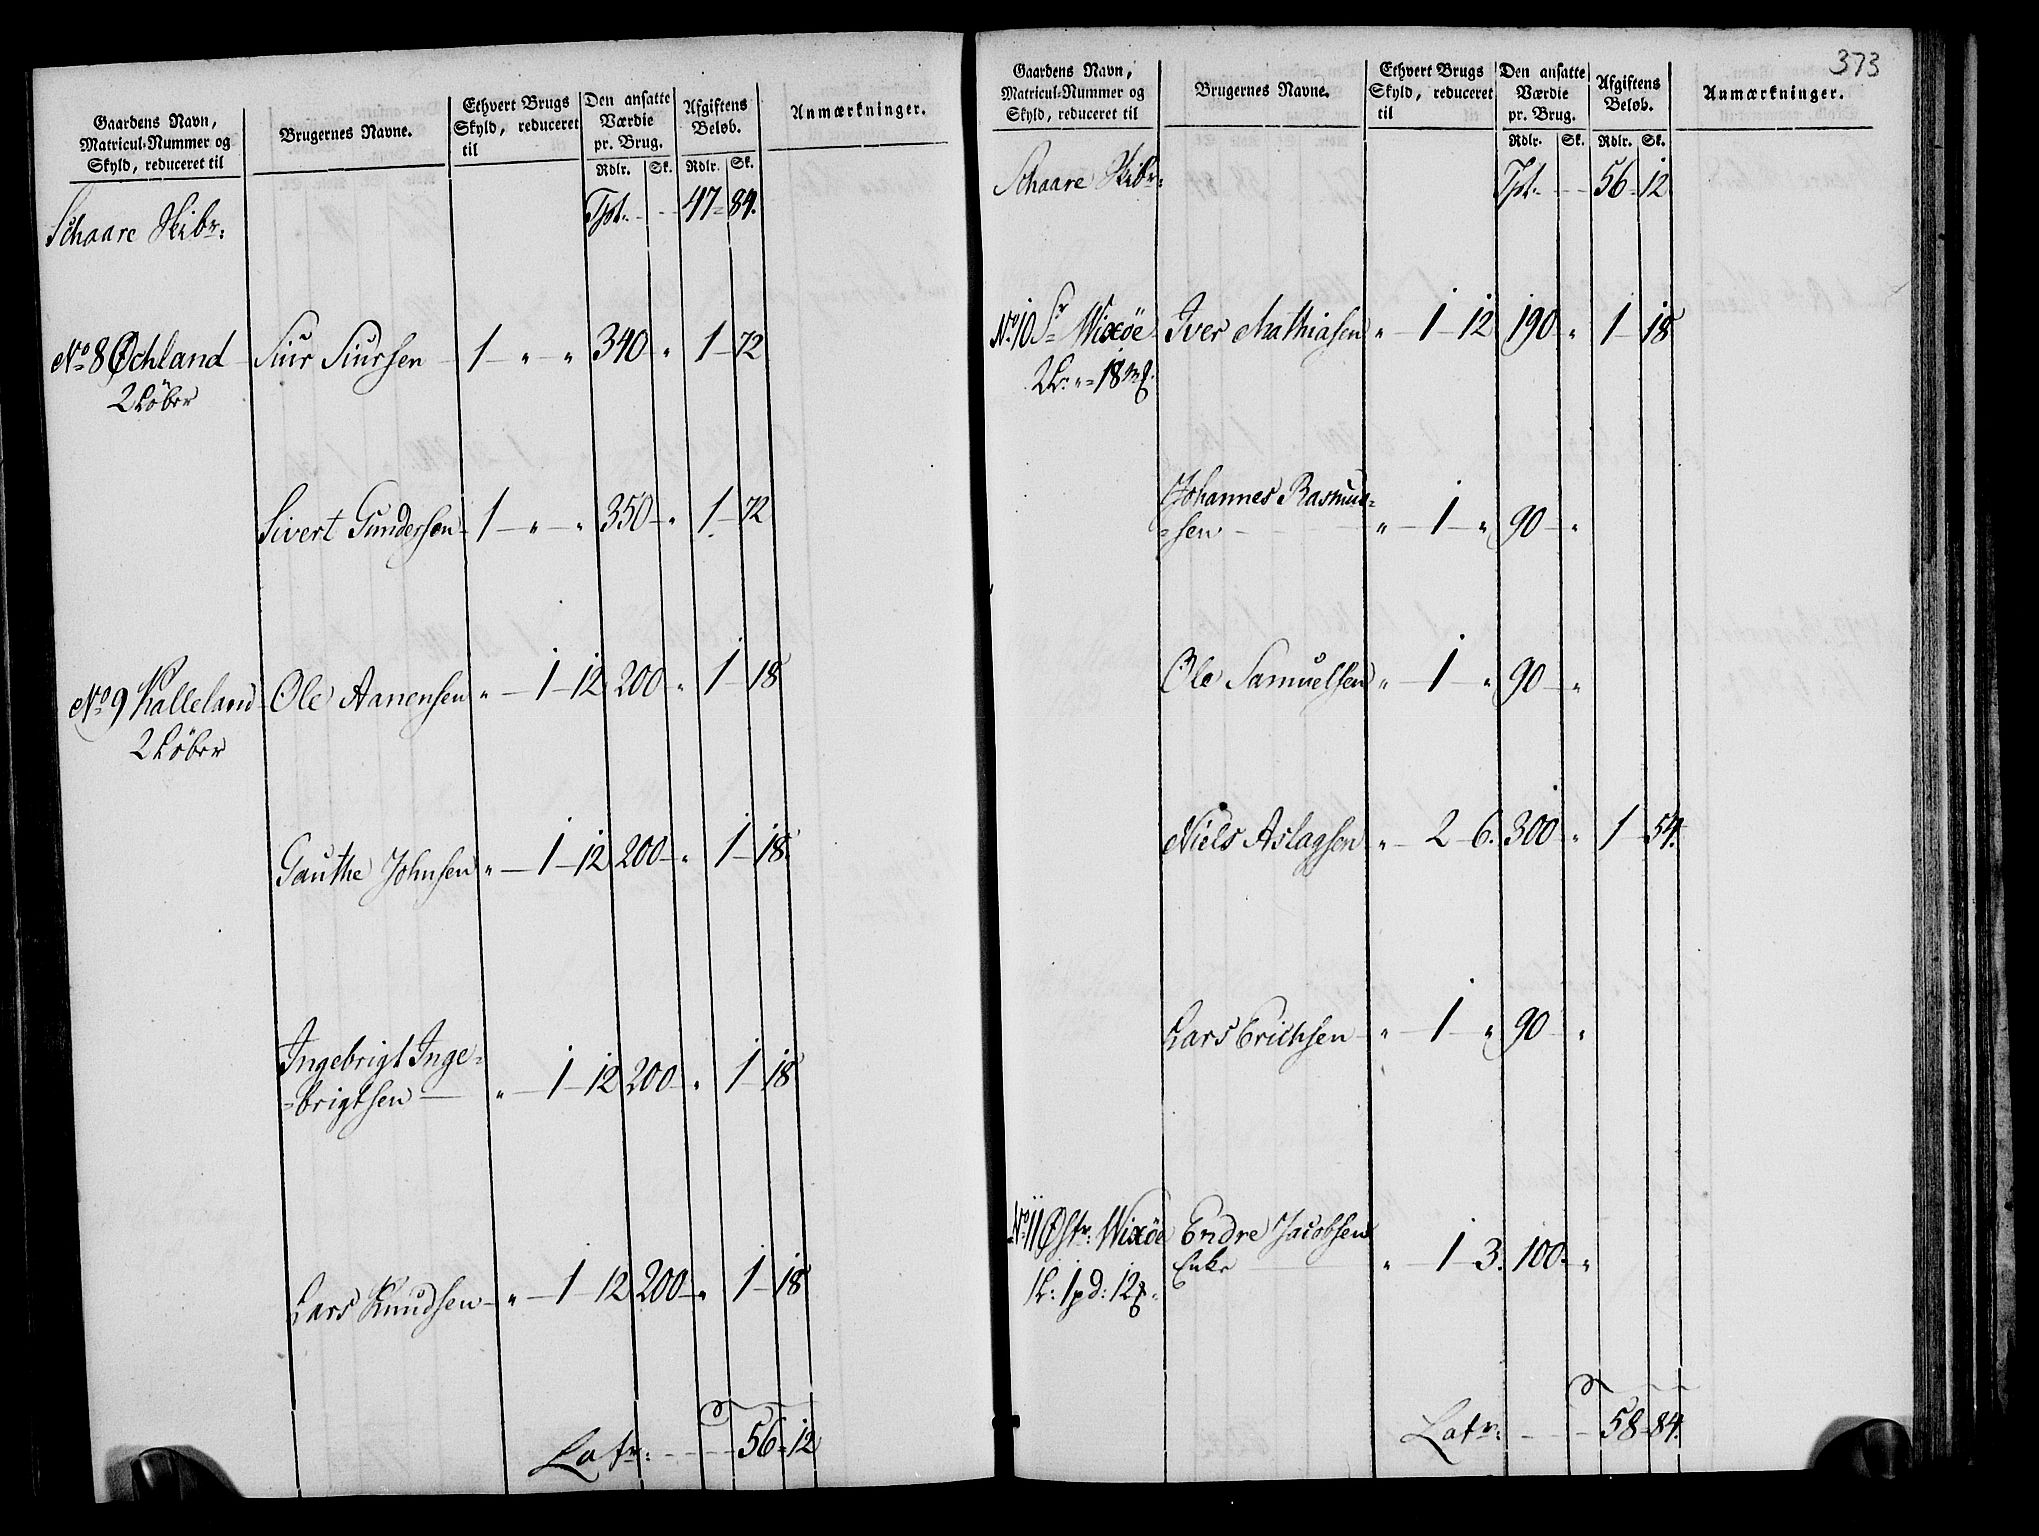 Gaardens Navn,
Matricul-Nummer og
Skyld, reduceret til
Brugernes Navne.
Ethvert Brugs
Skyld, reduceret
til
Den ansatte
Værdie
pr. Brug.
Rdlr. Sk.
Afgiftens
Beløb.
Rdlr. Sk.
Anmærkninger.
Schaare Skibr: Tpt. - - 47 = 84.
No 8 Øchland Siur Siursen 1 - " - " 340 " 1 - 72
2 Løber
Sivert Gundersen 1 - " - " 350 - " 1 - 72
No 9 Kalleland Ole Aanensen " - 1 - 12 200 " 1 - 18
2 Løber
Gauthe Johnsen " - 1 - 12 200 - " 1 - 18.
Ingebrigt Inge=
=brigtsen " - 1 - 12 200 " 1 - 18
Lars Knudsen " - 1 - 12 200 - " 1 - 18
Latr: - - - 56 = 12
373
Gaardens Navn,
Matricul-Nummer og
Skyld, reduceret til
Brugernes Navne.
Ethvert Brugs
Skyld, reduceret
til
Den ansatte
Værdie
pr. Brug.
Rdlr. Sk.
Afgiftens
Beløb.
Rdlr. Sk.
Anmærkninger.
Schaare Skibr: Tpt. - - 56 - 12
No 10 Sr Wixøe Iver Mathiasen " - 1 - 12 190 " 1 - 18
2 L: " = 18 mg.
Johannes Rasmus=
=sen - " - 1 - " 90 - "
Ole Samuelsen " - 1 - " 90 - "
Niels Aslagsen " - 2 - 6. 300 " 1 - 54.
Lars Erichsen " - 1 - " 90 - "
No 11 Østr: Wixøe Endre Jacobsens
Enke " - 1 - 3. 100 - "
1 L: 1 pd: 12
Latr: - - - 58 - 84.